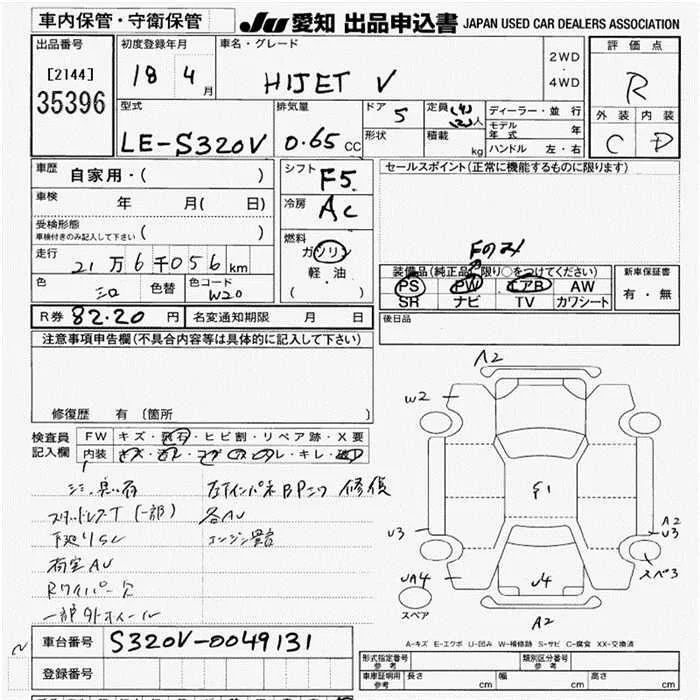 車内保管・守衛保管
JU 愛知 出品申込書 JAPAN USED CAR DEALERS ASSOCIATION
出品番号
[2144]
35396
初度登録年月
18 4月
車名・グレード
HIJET V
2WD
・
4WD
評価点
R
外装 内装
C D
型式
LE-S320V
排気量
0.65 CC
ドア
5
定員 (4)
(2)人
形状
積載 kg
ディーラー・並行
モデル年式 年
ハンドル 左・右
車歴 自家用・( )
車検 年 月( 日)
受検形態
車検付きのみ記入して下さい ( )
走行 21万6千056km
色 シロ 色替 色コード W20
シフト F5
冷房 AC
燃料
ガソリン
軽・油
( )
セールスポイント(正常に機能するものに限ります)
Fのみ
装備品(純正品に限り○をつけてください)
PS PW エアB AW
SR ナビ TV カワシート
新車保証書
有・無
R券 82.20 円 名変通知期限 月 日
後日品
注意事項申告欄(不具合内容等は具体的に記入して下さい)
修復歴 有 〔箇所 〕
検査員
記入欄
FW キズ・飛石・ヒビ割・リペア跡・X要
内装 キズ・汚レ・コゲ・スレ・キレ・破D
修復
スタッドレスT (一部) 各AU
下廻りSU エンジン異音
荷室AU
Rワイパー欠
一部外ホイール
A2
W2
G1
U3
A2
U3
スペ3
UA4
U4
スペア
A2
A-キズ E-エクボ U-凹み W-補修跡 S-サビ C-腐食 XX-交換済
車台番号 S320V-0049131
登録番号
形式指定番号
参考
類別区分番号
参考
車庫証明用
参考
長さ cm 幅 cm 高さ cm